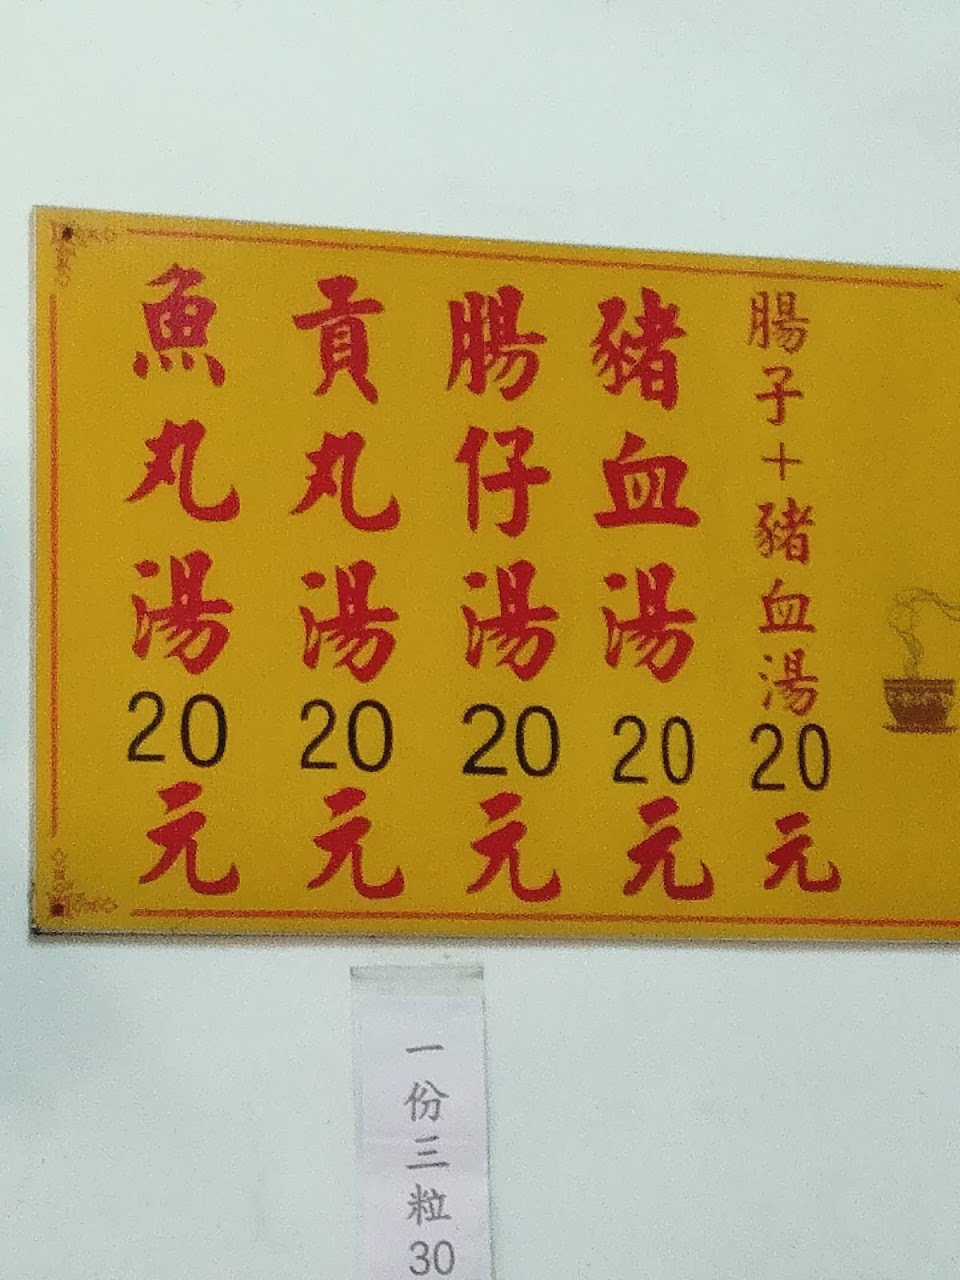 魚丸湯20元
貢丸湯20元
腸仔湯20元
豬血湯20元
腸子+豬血湯20元
一份三粒30